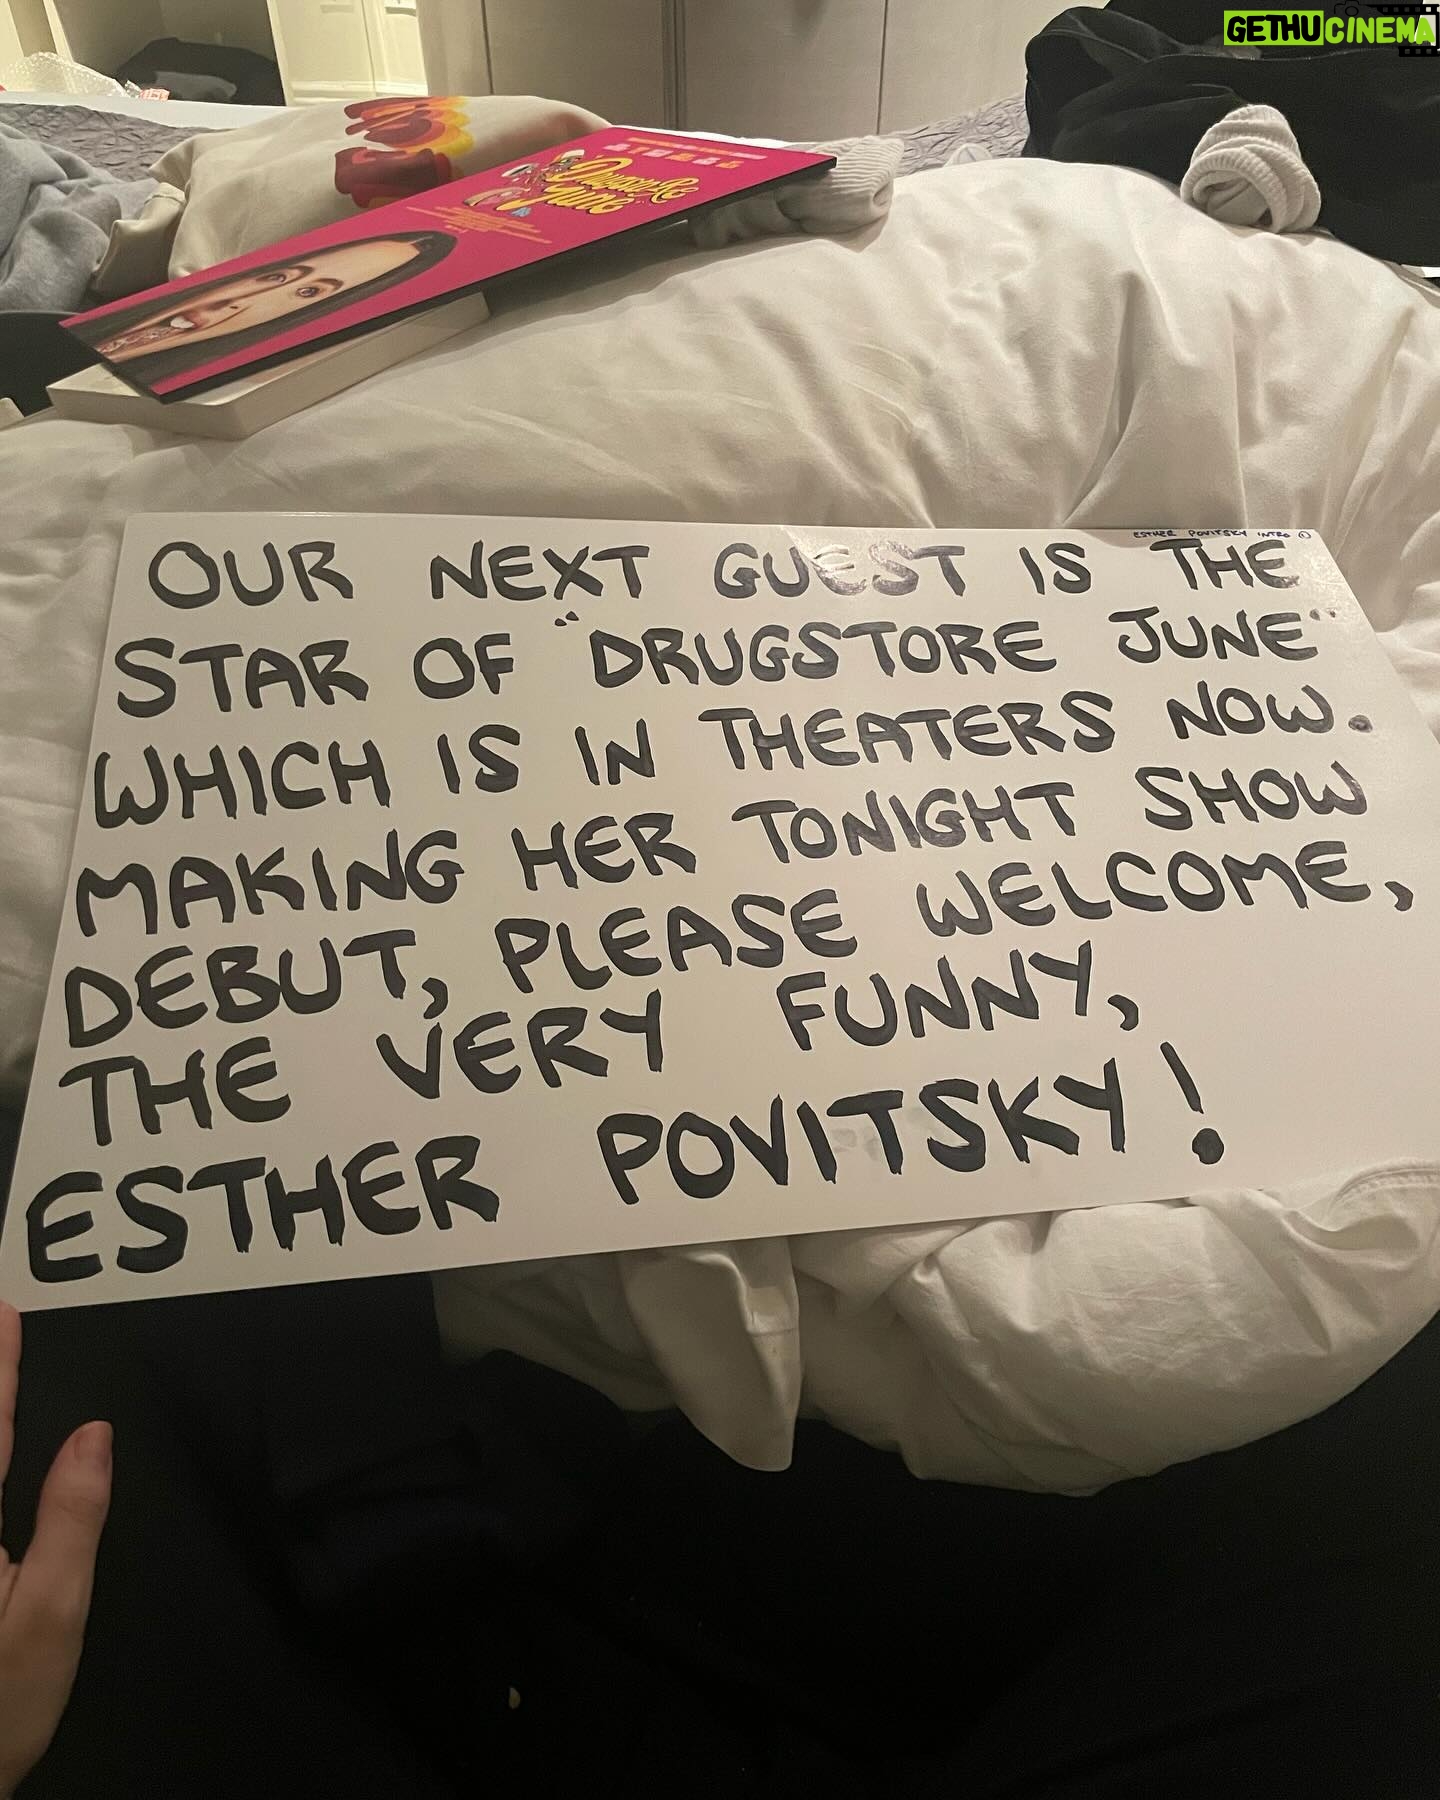 GETHUCINEMA
Drugstore
June
ESTHER POVITSKY INTRO ①
OUR NEXT GUEST IS THE
STAR OF "DRUGSTORE JUNE"
WHICH IS IN THEATERS NOW.
MAKING HER TONIGHT SHOW
DEBUT, PLEASE WELCOME,
THE VERY FUNNY,
ESTHER POVITSKY!